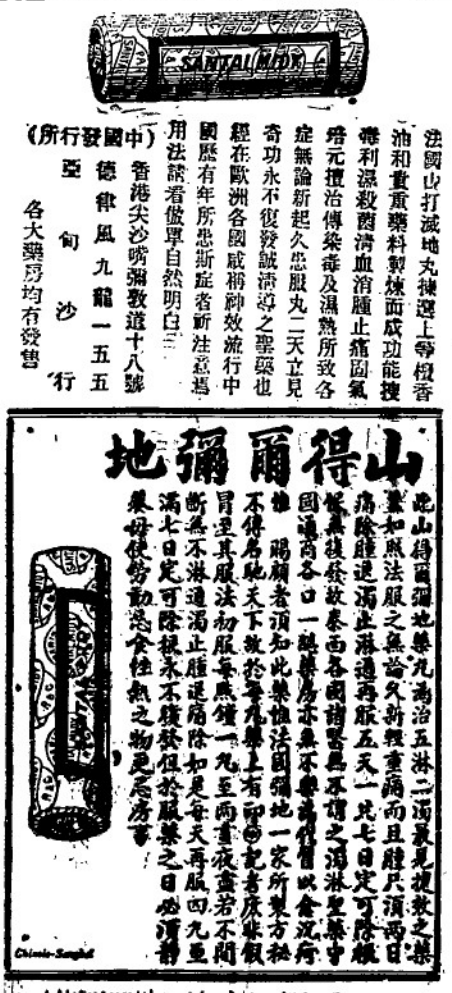 SANTAL MIDY
法國山打滅地丸揀選上等檀香
油和貴重藥料製煉而成功能搜
毒利濕殺菌清血消腫止痛固氣
培元擅治傳染毒及濕熱所致各
症無論新起久患服丸二天立見
奇功永不復發誠清導之聖藥也
經在歐洲各國咸稱神效流行中
國歷有年所患斯症者祈注意焉
用法請看倣單自然明白
(中國發行所)
香港尖沙嘴彌敦道十八號
德律風九龍一五五
亞旬沙行
各大藥房均有發售
山得爾彌地
此山得爾彌地藥丸為治五淋二濁最見捷效之藥
蓋如照法服之無論久新輕重痛而且腫只須兩日
痛除腫退濁止淋通再服五天一共七日定可除根
保無後發故泰西各國諸醫無不謂之濁淋聖藥中
國通商各口一切藥房亦無不樂為代售以愈沉疴
惟 賜顧者須知此藥惟法國彌地一家所製方秘
不傳名馳天下故於每丸藥上有印記者庶非假
冒至其服法初服每點鐘一丸至兩晝夜盡若不間
斷無不淋通濁止腫退痛除如是每天再服四丸至
滿七日定可除根永不復發但於服藥之日必須靜
養毋使勞動忌食性熱之物更忌房事